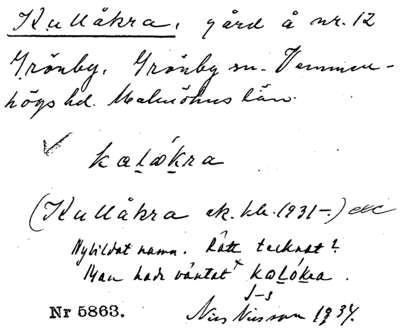 Kullåkra, gård å nr. 12
Grönby, Grönby sn. Vemmen-
högs hd. Malmöhus län.
kalåkra
(Kullåkra ek. bl. 1931-.)
Nybildat namn. Rätt tecknat?
Man hade väntat kalåkra.
J-s
Nr 5863. Nils Nilsson 1934.